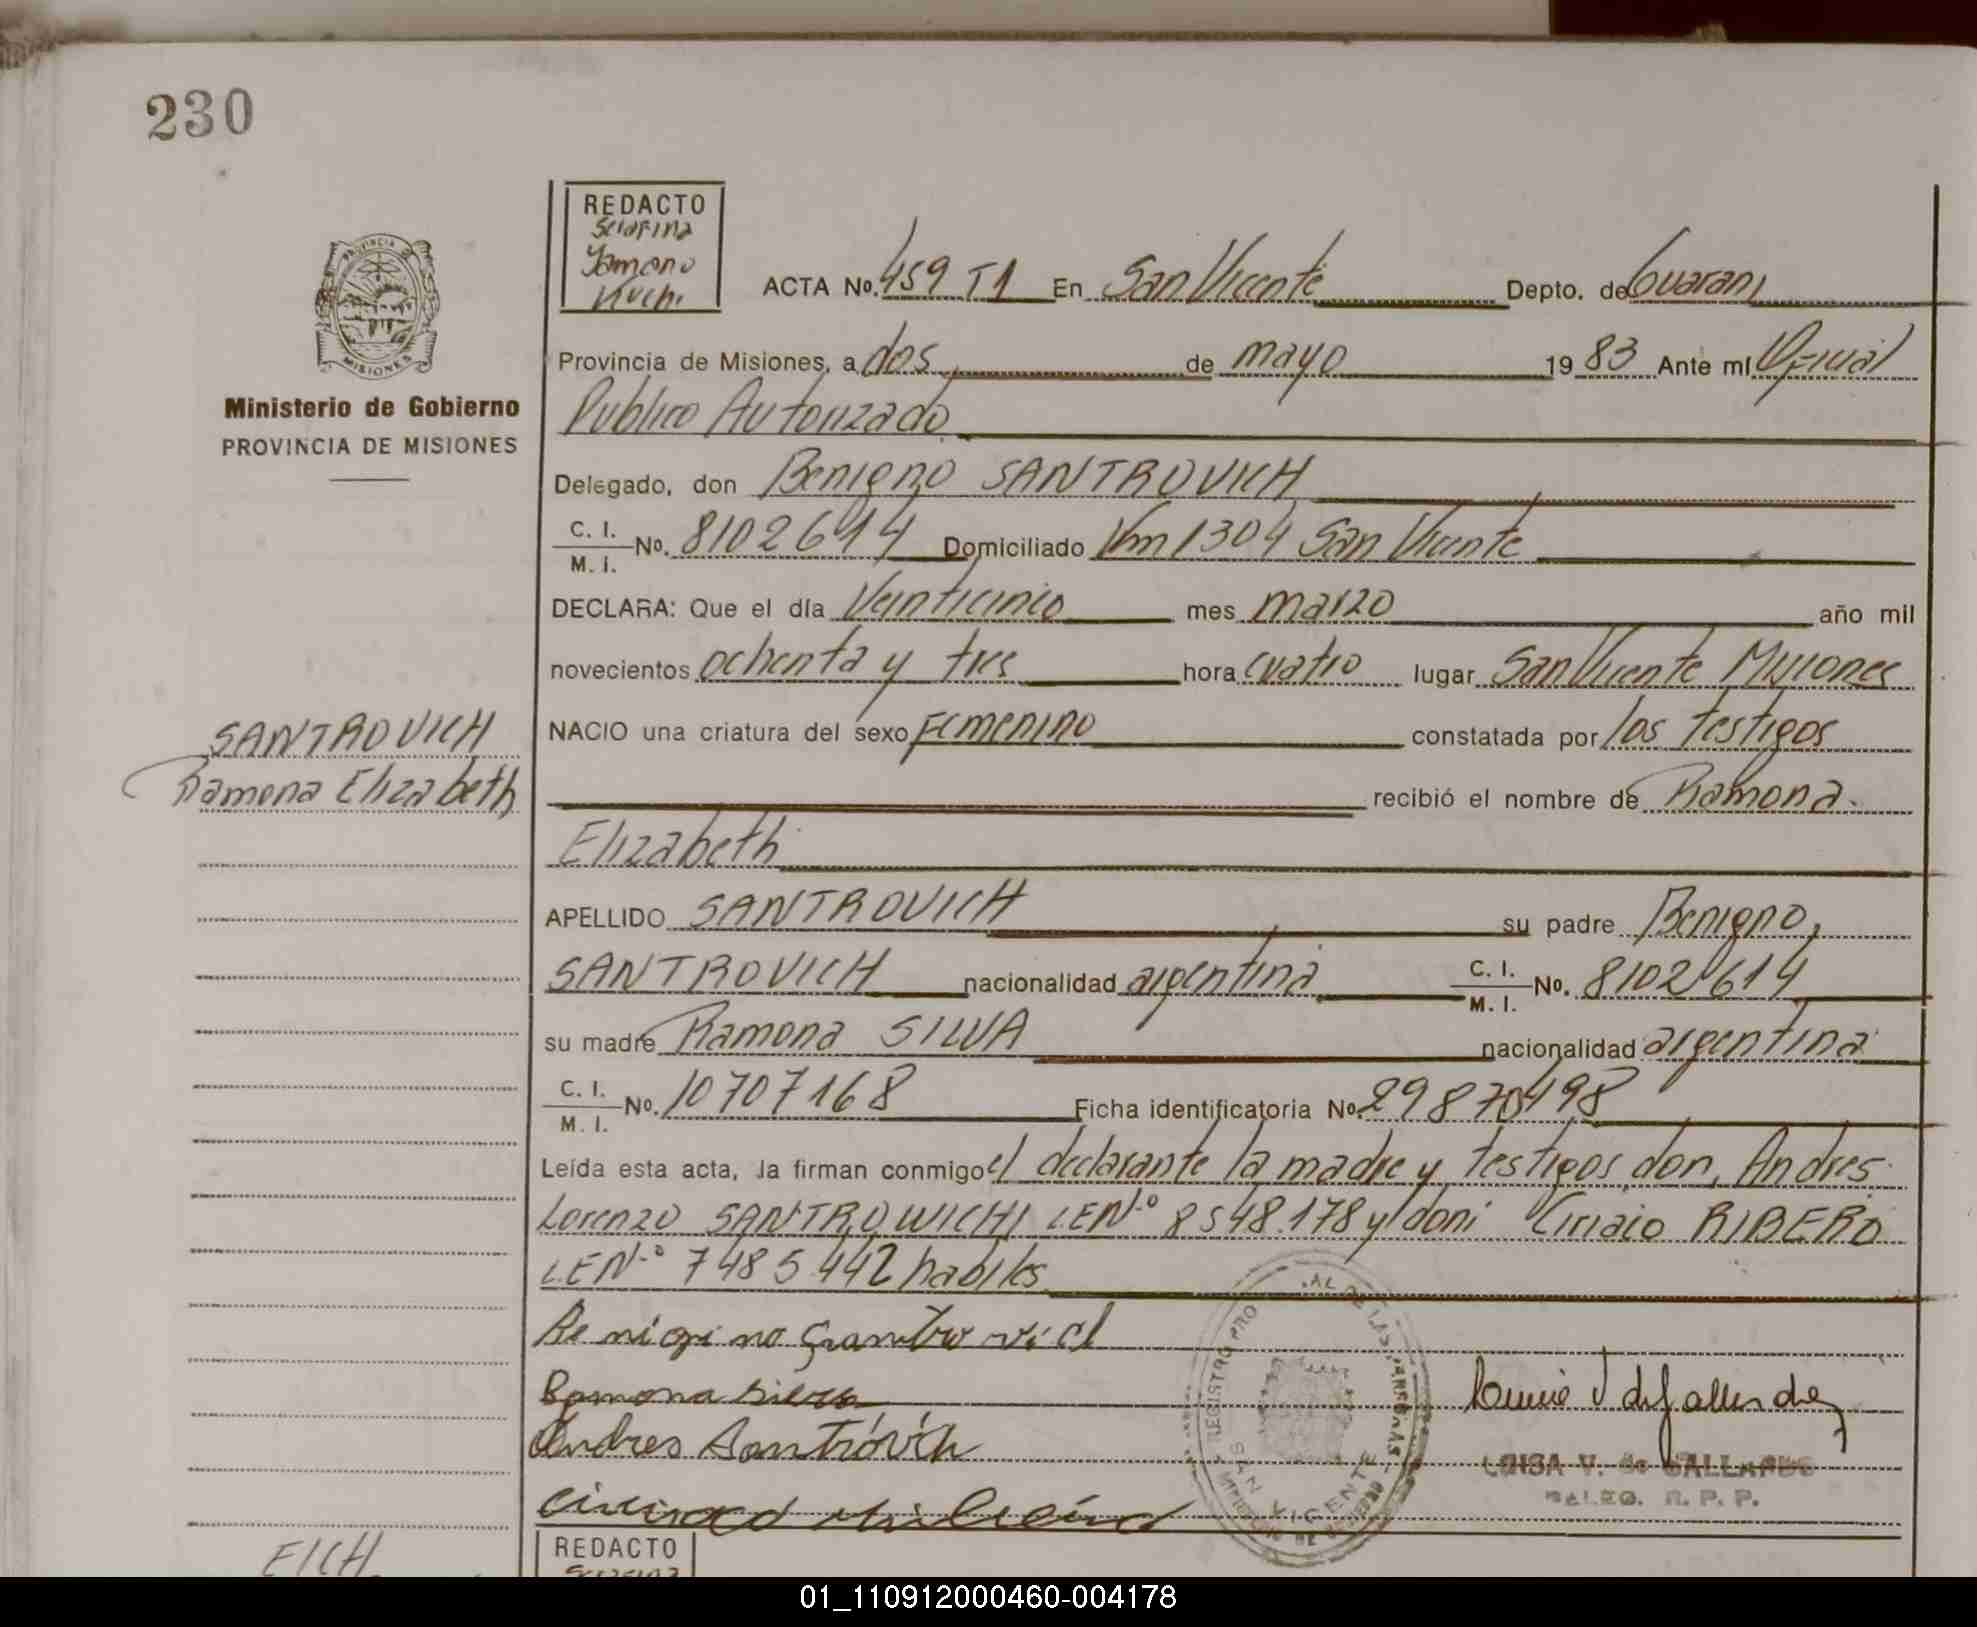 230
REDACTO
Serafina
Yamono
Kuchi
PROVINCIA DE
MISIONES
Ministerio de Gobierno
PROVINCIA DE MISIONES
ACTA No. 459 T1 En San Vicente Depto. de Guarani
Provincia de Misiones, a dos de mayo 1983 Ante mí Oficial
Publico Autorizado
Delegado, don Benigno SANTROVICH
C. I. / M. I. No. 8102614 Domiciliado Km 1304 San Vicente
DECLARA: Que el día Veinticinco mes marzo año mil
novecientos ochenta y tres hora cuatro lugar San Vicente Misiones
SANTROVICH
Ramona Elizabeth
NACIO una criatura del sexo Femenino constatada por los testigos
recibió el nombre de Ramona
Elizabeth
APELLIDO SANTROVICH su padre Benigno
SANTROVICH nacionalidad argentina C. I. / M. I. No. 8102614
su madre Ramona SILVA nacionalidad argentina
C. I. / M. I. No. 10707168 Ficha identificatoria No. 29870498
Leída esta acta, la firman conmigo el declarante la madre y testigos don Andres
Lorenzo SANTROWICH LEN.º 8548.178 y don Ciriaco RIBERO
LEN.º 7485.442 habiles
Ramona Silva
Andres Santróvich
LUISA V. de GALLARDO
R. P. P.
SAN VICENTE
EICH
REDACTO
Serafina
01_110912000460-004178